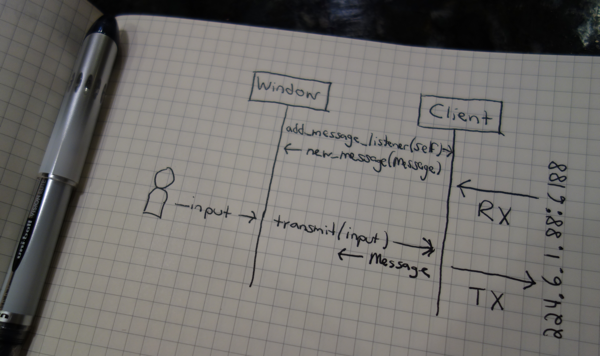 Window
Client
add_message_listener(self)
new_message(Message)
RX
input
transmit(input)
Message
TX
224.6.1.88:9188